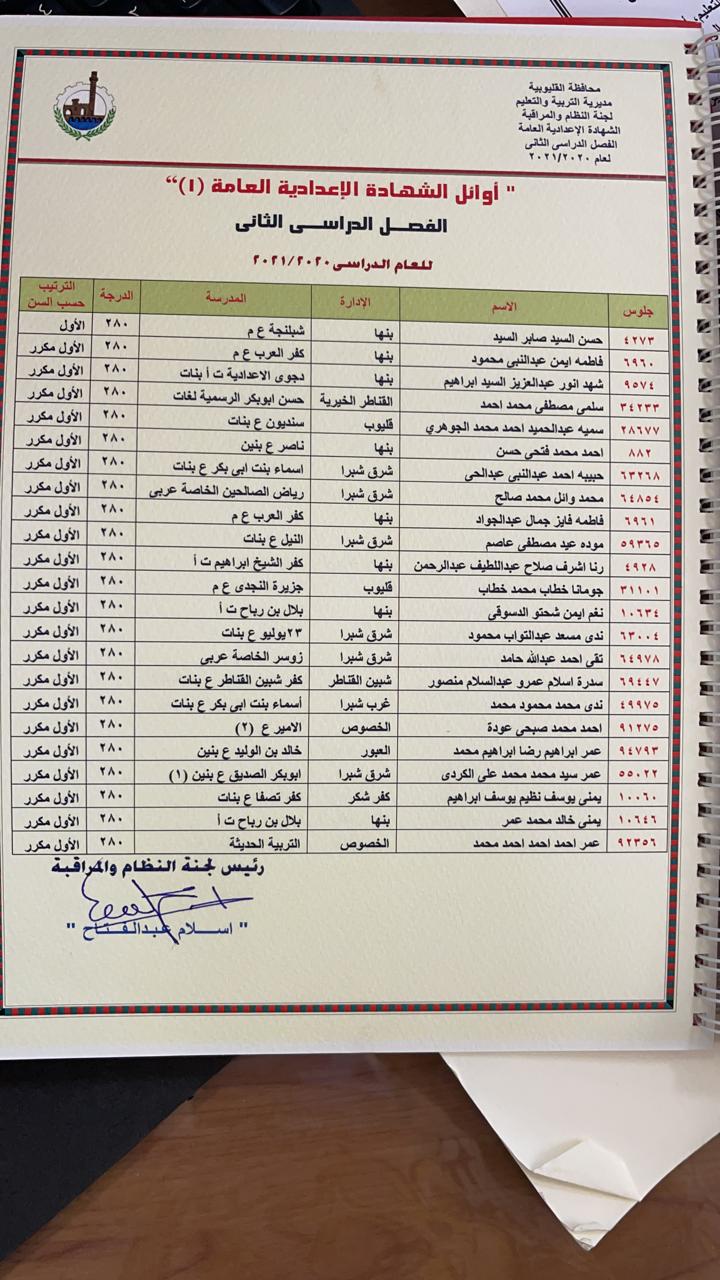 محافظة القليوبية
مديرية التربية والتعليم
لجنة النظام والمراقبة
الشهادة الإعدادية العامة
الفصل الدراسى الثانى
لعام ٢٠٢١/٢٠٢٠
" أوائل الشهادة الإعدادية العامة (١)"
الفصل الدراسى الثانى
للعام الدراسى ٢٠٢١/٢٠٢٠
جلوس الاسم الإدارة المدرسة الدرجة الترتيب حسب السن
٤٢٧٣ حسن السيد صابر السيد بنها شبلنجة ع م ٢٨٠ الأول
٦٩٦٠ فاطمه ايمن عبدالنبى محمود بنها كفر العرب ع م ٢٨٠ الأول مكرر
٩٥٧٤ شهد انور عبدالعزيز السيد ابراهيم بنها دجوى الاعدادية ت أ بنات ٢٨٠ الأول مكرر
٣٤٢٣٣ سلمى مصطفى محمد احمد القناطر الخيرية حسن ابوبكر الرسمية لغات ٢٨٠ الأول مكرر
٢٨٦٧٧ سميه عبدالحميد احمد محمد الجوهري قليوب سنديون ع بنات ٢٨٠ الأول مكرر
٨٨٢ احمد محمد فتحي حسن بنها ناصر ع بنين ٢٨٠ الأول مكرر
٦٣٢٦٨ حبيبه احمد عبدالنبي عبدالحى شرق شبرا اسماء بنت ابى بكر ع بنات ٢٨٠ الأول مكرر
٦٤٨٥٤ محمد وائل محمد صالح شرق شبرا رياض الصالحين الخاصة عربى ٢٨٠ الأول مكرر
٦٩٦١ فاطمه فايز جمال عبدالجواد بنها كفر العرب ع م ٢٨٠ الأول مكرر
٥٩٣٦٥ موده عيد مصطفى عاصم شرق شبرا النيل ع بنات ٢٨٠ الأول مكرر
٤٩٢٨ رنا اشرف صلاح عبداللطيف عبدالرحمن بنها كفر الشيخ ابراهيم ت أ ٢٨٠ الأول مكرر
٣١١٠١ جومانا خطاب محمد خطاب قليوب جزيرة النجدى ع م ٢٨٠ الأول مكرر
١٠٦٣٤ نغم ايمن شحتو الدسوقى بنها بلال بن رباح ت أ ٢٨٠ الأول مكرر
٦٣٠٠٤ ندى مسعد عبدالتواب محمود شرق شبرا ٢٣يوليو ع بنات ٢٨٠ الأول مكرر
٦٤٩٧٨ تقى احمد عبدالله حامد شرق شبرا زوسر الخاصة عربى ٢٨٠ الأول مكرر
٦٩٤٤٧ سدرة اسلام عمرو عبدالسلام منصور شبين القناطر كفر شبين القناطر ع بنات ٢٨٠ الأول مكرر
٤٩٩٧٥ ندى محمد محمود محمد غرب شبرا أسماء بنت ابى بكر ع بنات ٢٨٠ الأول مكرر
٩١٢٧٥ احمد محمد صبحي عودة الخصوص الامير ع (٢) ٢٨٠ الأول مكرر
٩٤٧٩٣ عمر ابراهيم رضا ابراهيم محمد العبور خالد بن الوليد ع بنين ٢٨٠ الأول مكرر
٥٥٠٢٢ عمر سيد محمد محمد على الكردى شرق شبرا ابوبكر الصديق ع بنين (١) ٢٨٠ الأول مكرر
١٠٠٦٠ يمنى يوسف نظيم يوسف ابراهيم كفر شكر كفر تصفا ع بنات ٢٨٠ الأول مكرر
١٠٦٤٦ يمنى خالد محمد عمر بنها بلال بن رباح ت أ ٢٨٠ الأول مكرر
٩٢٣٥٦ عمر احمد احمد احمد محمد الخصوص التربية الحديثة ٢٨٠ الأول مكرر
رئيس لجنة النظام والمراقبة
" اسلام عبدالفتاح "